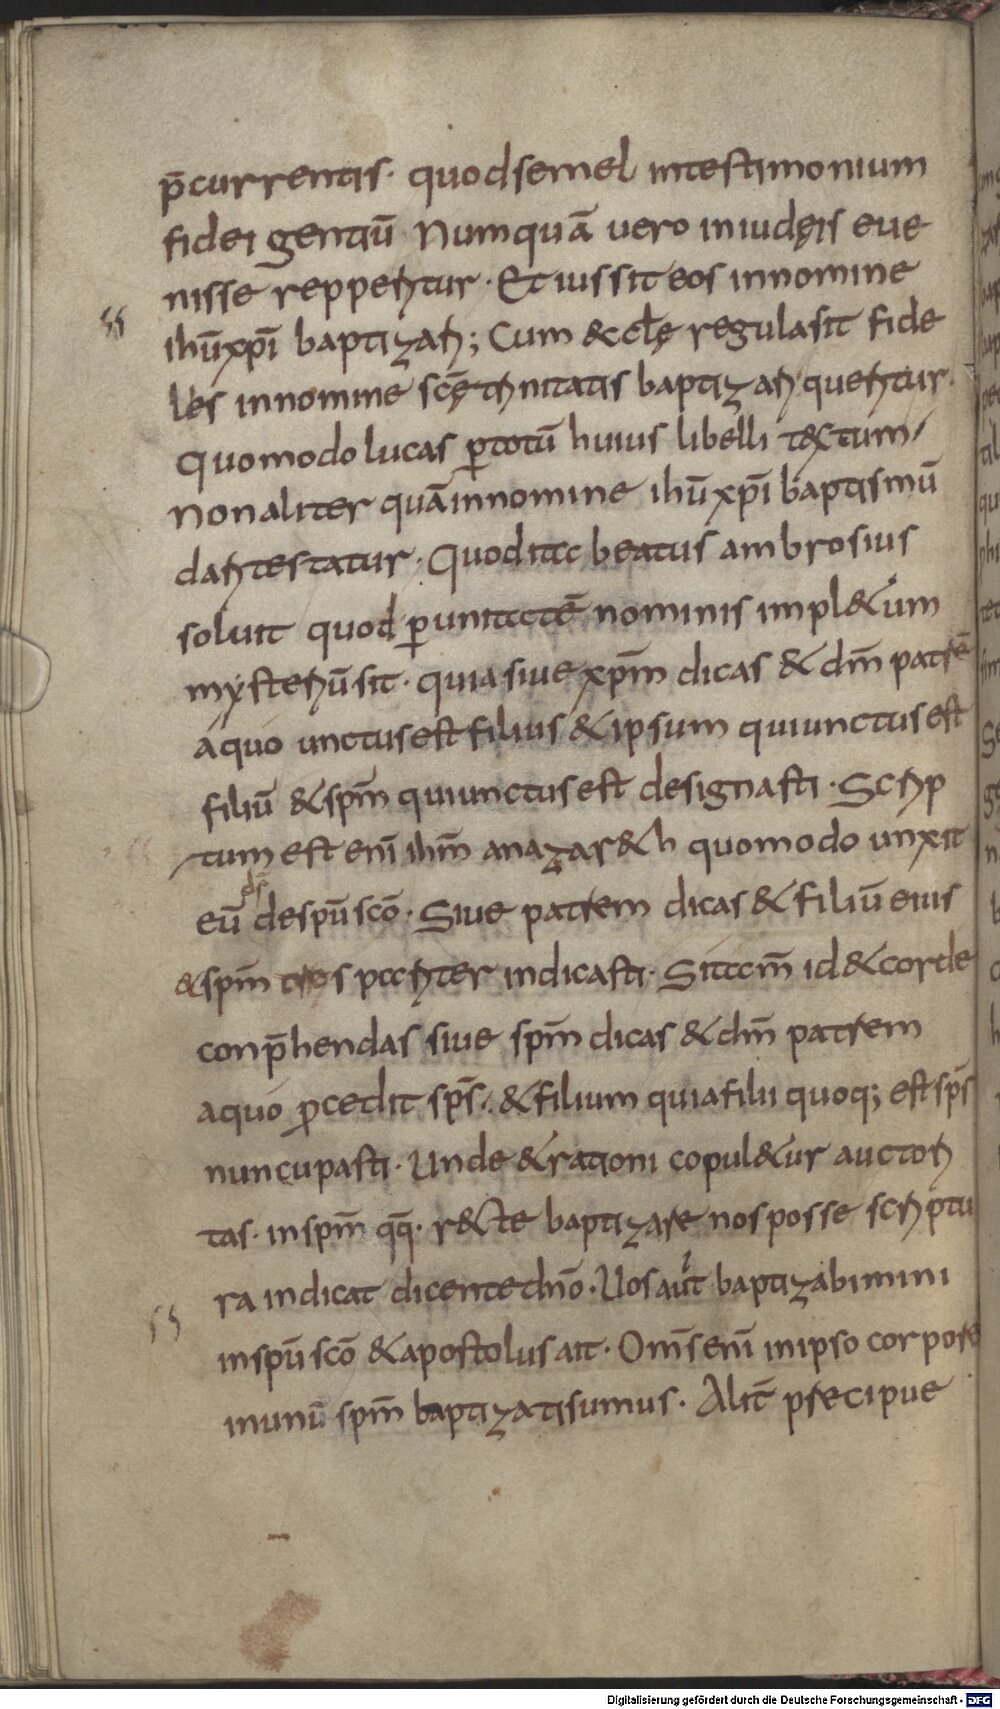 p̄currentis· quodsemel intestimonium
fidei gentiū Numquā vero iniudęis eue
nisse repperitur· Et iussit eos innomine
ihūxp̄i baptizari; Cum &cl̄ę regulasit fide
les innomine scę̄ trinitatis baptizari queritur·
Quomodo lucas ꝑtotū huius libelli textum
Nonaliter quāinnomine ihūxp̄i baptismū
dari testatur· Quod ita beatus ambrosius
soluit quod ꝑunitatē nominis impl&um
mysteriū sit· quia siue xpm̄ dicas & dm̄ patrē
aquo unctusest filius & ipsum quiunctusest
filiū & spm̄ quiunctusest designasti· Scrip
tum est enī ihm̄ anazar&h quomodo unxit
eū ds̄ despū scō· Siue patrem dicas & filiū eius
& spm̄ oris pariter indicasti· Si tam̄ id & corde
conp̄hendas siue spm̄ dicas & dm̄ patrem
aquo ꝓcedit sps̄· & filium quiafilii quoq; est sps̄
nuncupasti· Unde & rationi copul&ur auctori
tas· inspm̄ qq̄· r&cte baptizare nosposse scriptu
ra indicat dicente dnō· Uos aut̄ baptizabimini
inspū scō & apostolus ait· Oms̄ enī inipso corpore
inunū spm̄ baptizatisumus· Alit̄ precipue
55
55
Digitalisierung gefördert durch die Deutsche Forschungsgemeinschaft - DFG